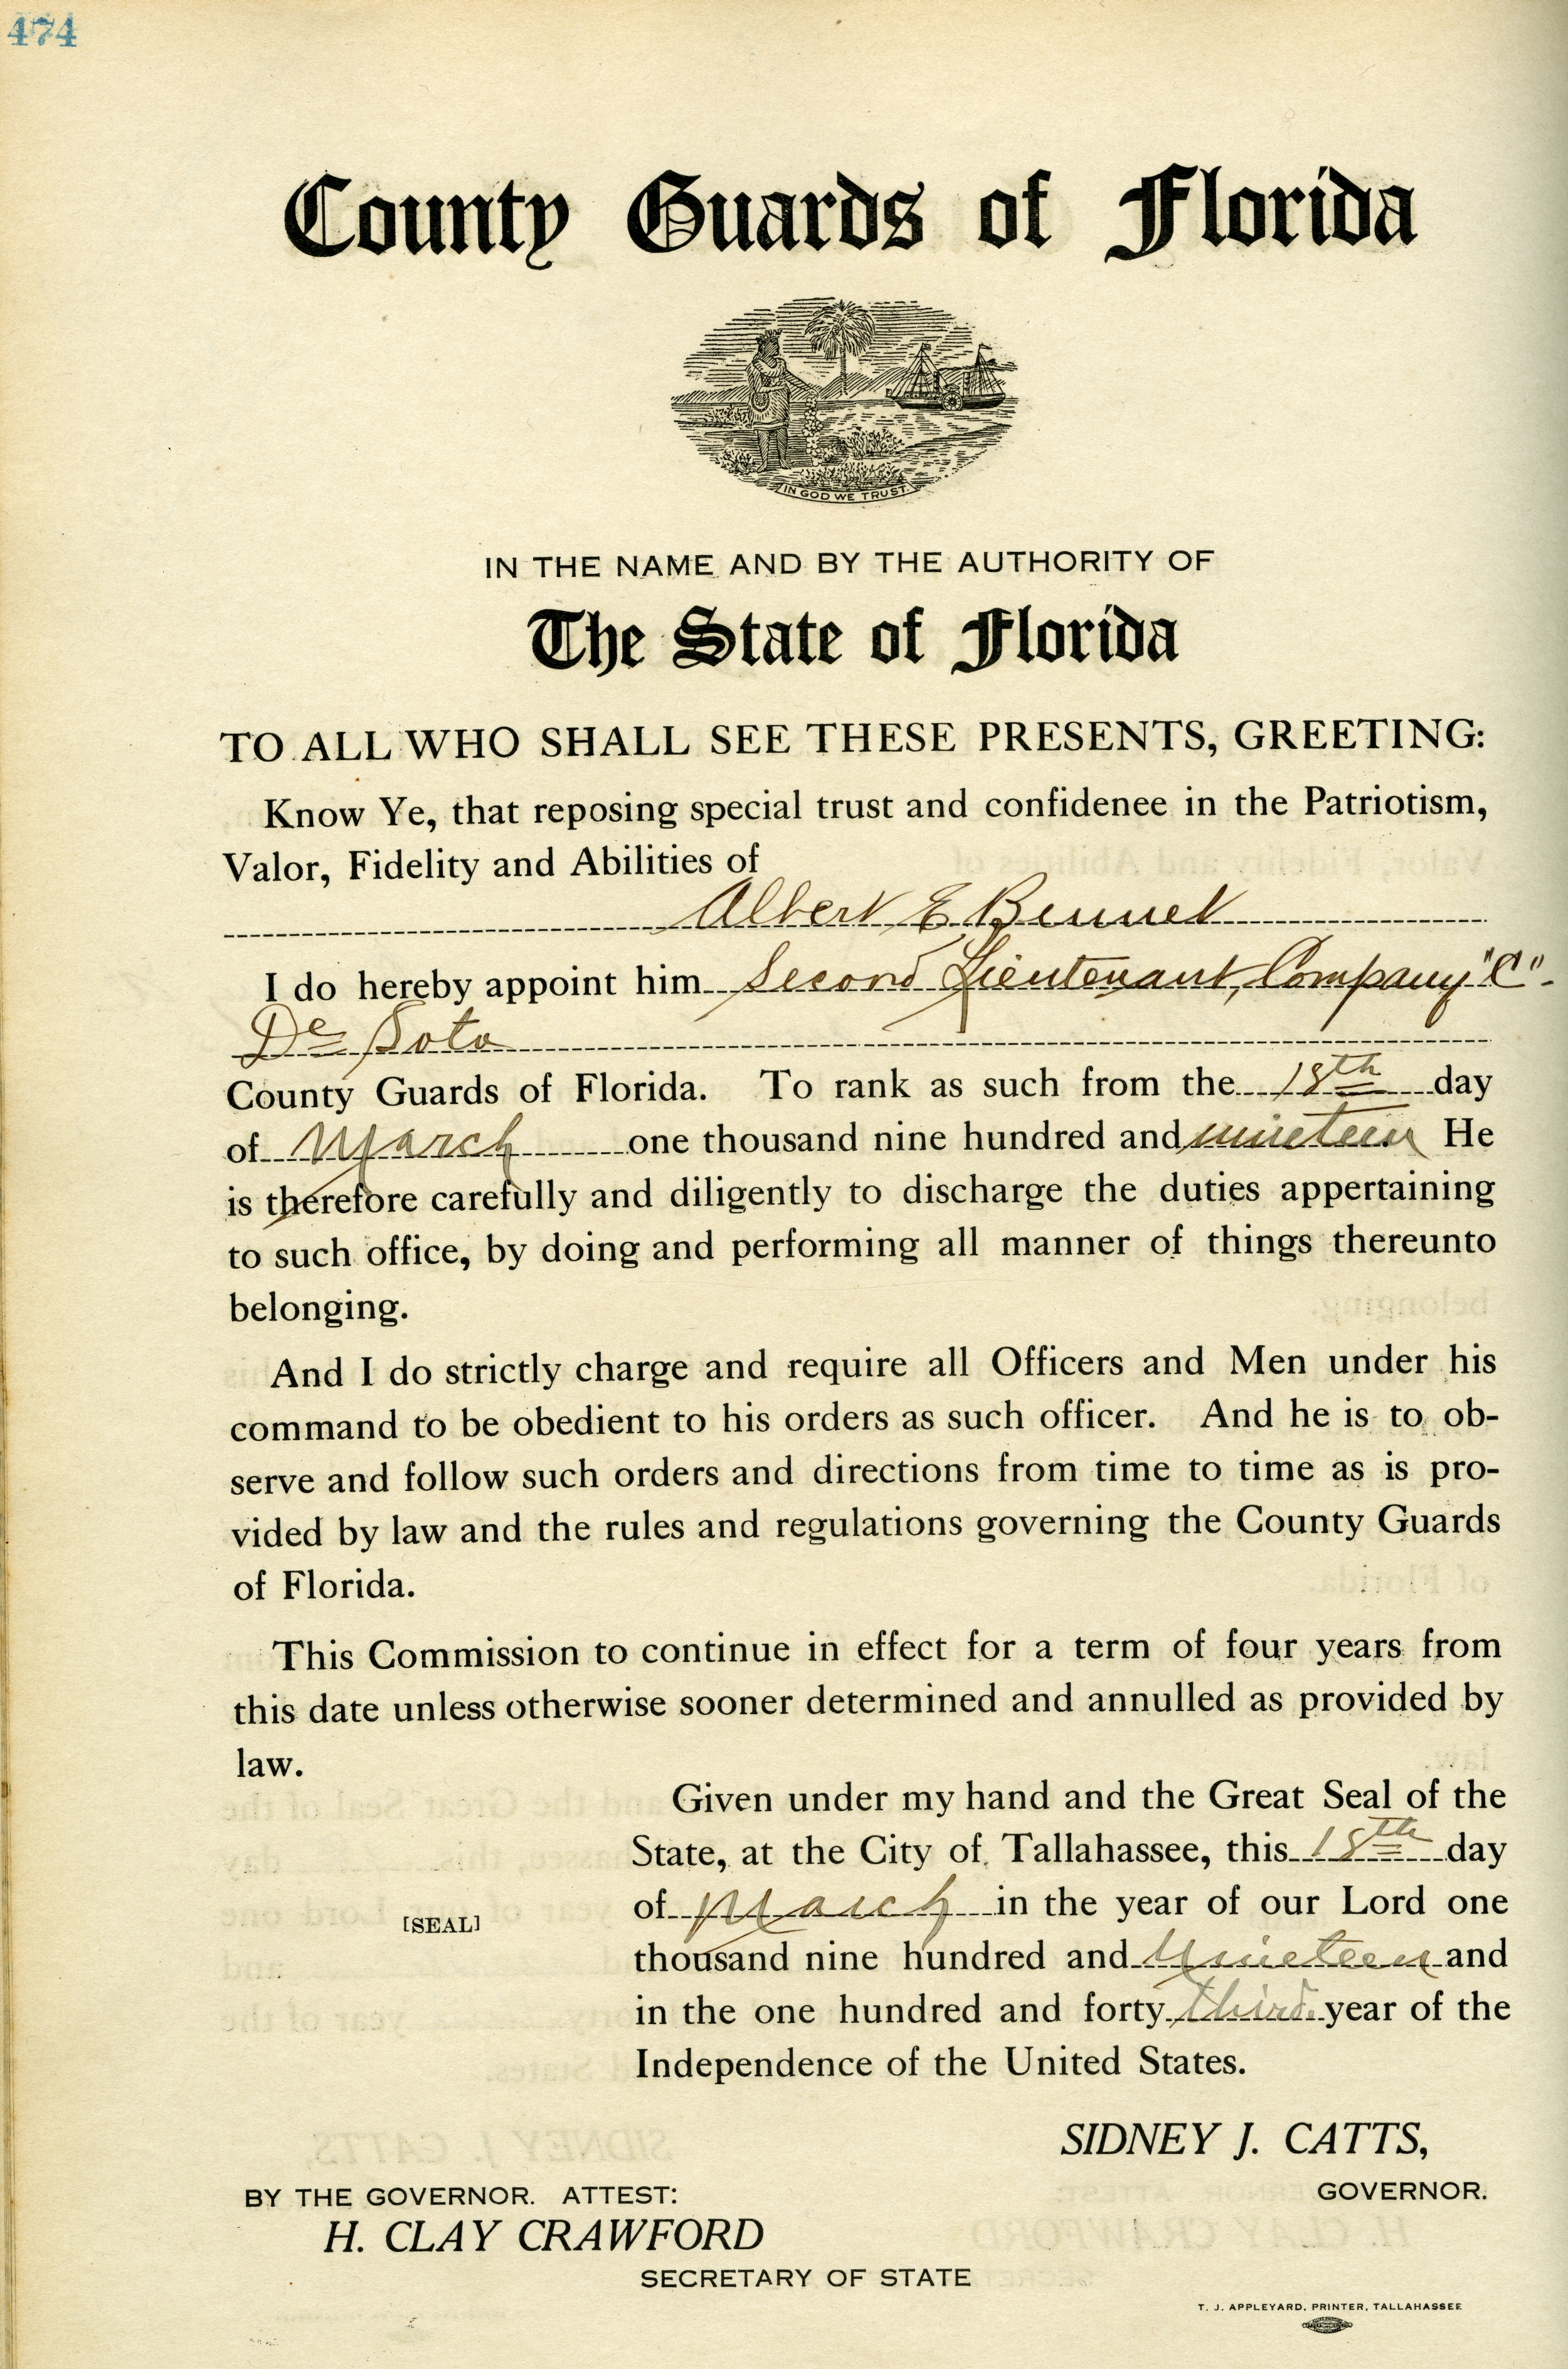 474
County Guards of Florida
IN GOD WE TRUST
IN THE NAME AND BY THE AUTHORITY OF
The State of Florida
TO ALL WHO SHALL SEE THESE PRESENTS, GREETING:
Know Ye, that reposing special trust and confidenee in the Patriotism,
Valor, Fidelity and Abilities of
Albert E Bennet
I do hereby appoint him Second Lieutenant, Company "C"
De Soto
County Guards of Florida. To rank as such from the 18th day
of March one thousand nine hundred and nineteen He
is therefore carefully and diligently to discharge the duties appertaining
to such office, by doing and performing all manner of things thereunto
belonging.
And I do strictly charge and require all Officers and Men under his
command to be obedient to his orders as such officer. And he is to ob-
serve and follow such orders and directions from time to time as is pro-
vided by law and the rules and regulations governing the County Guards
of Florida.
This Commission to continue in effect for a term of four years from
this date unless otherwise sooner determined and annulled as provided by
law.
Given under my hand and the Great Seal of the
State, at the City of Tallahassee, this 18th day
of March in the year of our Lord one
[SEAL]
thousand nine hundred and nineteen and
in the one hundred and forty third year of the
Independence of the United States.
SIDNEY J. CATTS,
GOVERNOR.
BY THE GOVERNOR. ATTEST:
H. CLAY CRAWFORD
SECRETARY OF STATE
T. J. APPLEYARD, PRINTER, TALLAHASSEE